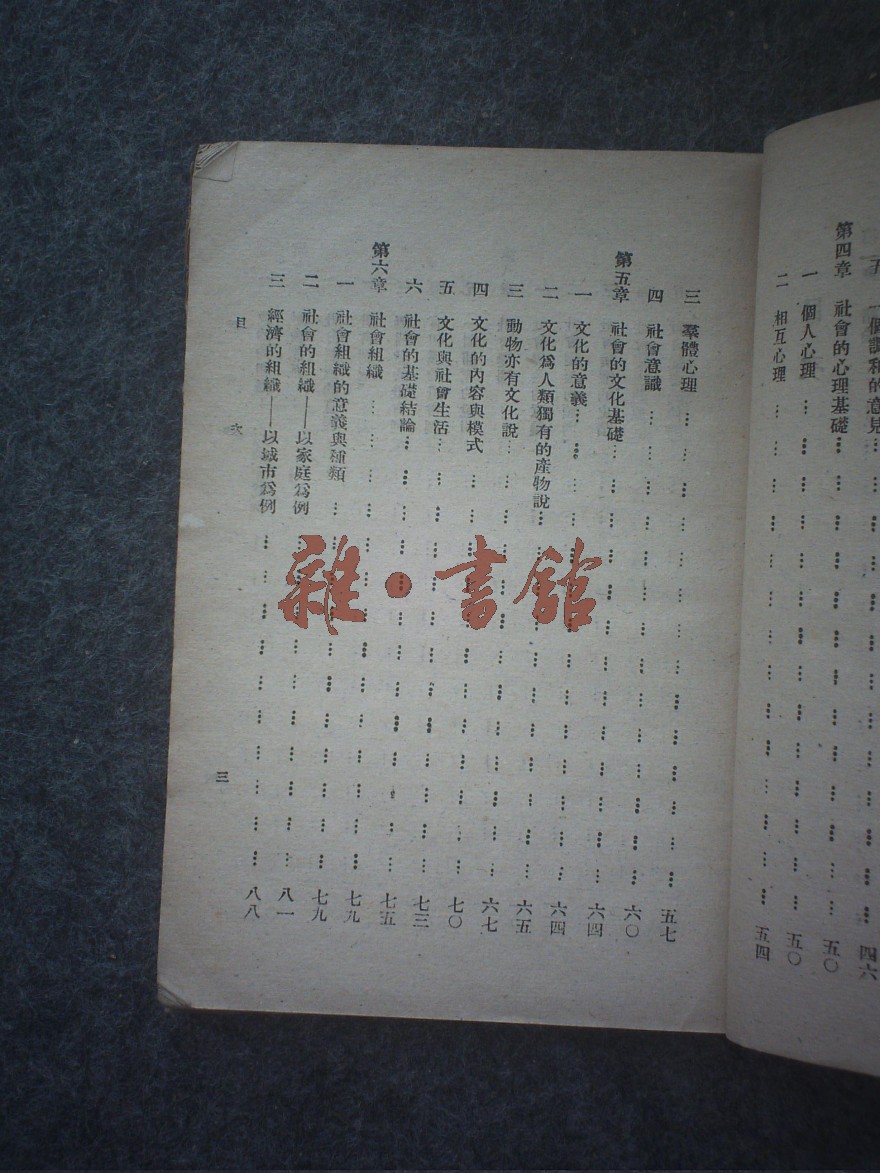 五　一個調和的意見……四六
第四章　社會的心理基礎……五〇
一　個人心理……五〇
二　相互心理……五四
三　羣體心理……五七
四　社會意識……六〇
第五章　社會的文化基礎……六四
一　文化的意義……六四
二　文化爲人類獨有的產物說……六五
三　動物亦有文化說……六七
四　文化的內容與模式……七〇
五　文化與社會生活……七三
六　社會的基礎結論……七五
第六章　社會組織……七九
一　社會組織的意義與種類……七九
二　社會的組織——以家庭爲例……八一
三　經濟的組織——以城市爲例……八八
目　次　三
雜·書館